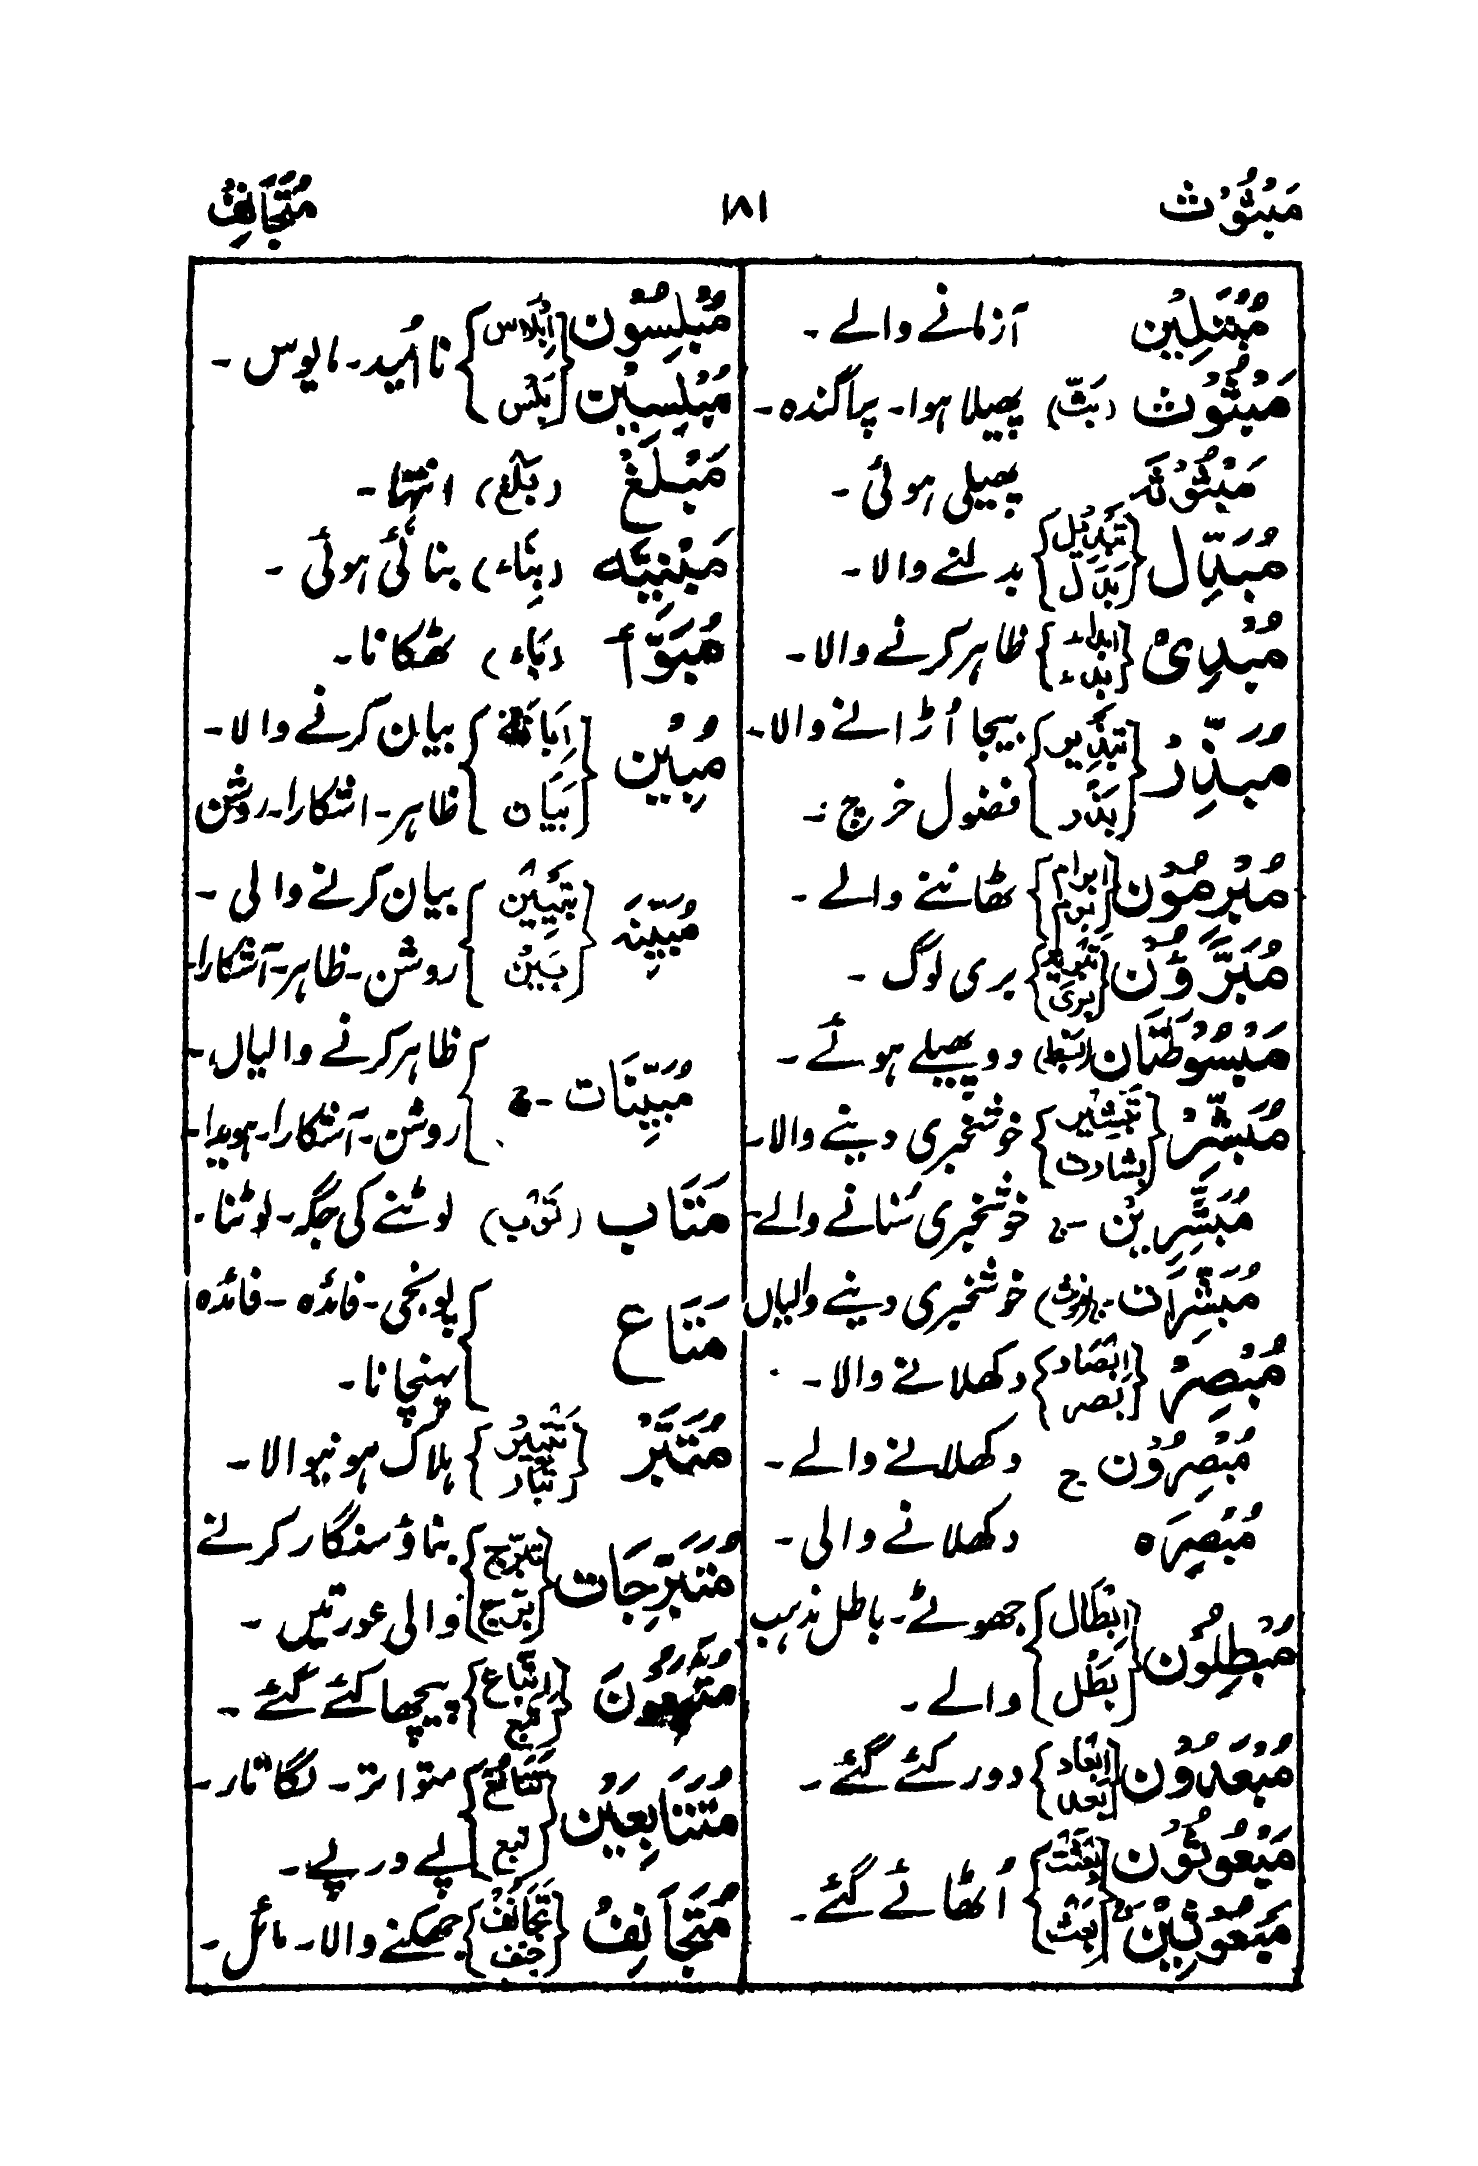 مَبْثُوْث ۱۸۱ مُتَجَانِفٌ
مُبْتَلِيْن آزمانے والے ۔
مَبْثُوْث (بَثّ) پھیلا ہوا۔ پراگندہ ۔
مَبْثُوْثَہ پھیلی ہوئی ۔
مُبَدِّل {تَبْدِیْل بَدَل} بدلنے والا۔
مُبْدِیْ {ابداء بدء} ظاہر کرنے والا۔
مُبَذِّرْ {تبذیر بَذْر} بیجا اُڑانے والا۔
فضول خرچ :۔
مُبْرِمُوْن {ابرام برم} ٹھاننے والے ۔
مُبَرَّءُوْن {تبرئۃ بری} بری لوگ ۔
مَبْسُوْطَتَان (بسط) دو پھیلے ہوئے ۔
مُبَشِّرْ {تبشیر بشارت} خوشخبری دینے والا۔
مُبَشِّرِیْن ۔ج خوشخبری سُنانے والے۔
مُبَشِّرَات ۔ج (مؤنث) خوشخبری دینے والیاں
مُبْصِرْ {اِبْصَار بصر} دکھلانے والا ۔
مُبْصِرُوْن ج دکھلانے والے ۔
مُبْصِرَہ دکھلانے والی ۔
مُبْطِلُوْن {اِبْطَال بَطْل} جھوٹے۔ باطل مذہب
والے ۔
مُبْعَدُوْن {ابعاد بعد} دور کئے گئے ۔
مَبْعُوْثُوْن {بعثت
مَبْعُوْثِیْنَ بَعْث} اُٹھائے گئے ۔
مُبْلِسُوْن {اِبْلَاس
مُبْلِسِیْن بَلَس} نا اُمید۔ مایوس ۔
مَبْلَغْ (بَلَغَ) انتہا ۔
مَبْنِیَّہ (بِنَاء) بنائی ہوئی ۔
مُبَوَّأ (بَاء) ٹھکانا ۔
مُبِیْن {اِبَانَۃ بَیَان} بیان کرنے والا ۔
ظاہر۔ اشکارا۔ روشن
مُبَیِّنَہ {تَبْیِیْن بَیْن} بیان کرنے والی ۔
روشن ۔ ظاہر۔ آشکارا۔
مُبَیِّنَات ۔ج ظاہر کرنے والیاں ۔
روشن ۔ آشکارا۔ ہویدا۔
مَتَاب (تَوْب) لوٹنے کی جگہ۔ لوٹنا۔
مَتَاع پونجی ۔ فائدہ ۔ فائدہ
پہنچانا ۔
مُتَبَّرْ {تَتْبِیْر تبار} ہلاک ہونیوالا ۔
مُتَبَرِّجَات {تبرّج برج} بناؤ سنگار کرنے
والی عورتیں ۔
مُتَّبَعُوْنَ {اِتِّبَاع تبع} پیچھا کئے گئے ۔
مُتَتَابِعَیْن {تَتَابُع تبع} متواتر ۔ لگاتار ۔
پے در پے ۔
مُتَجَانِفٌ {تَجَانُف جنف} جھکنے والا ۔ مائل ۔